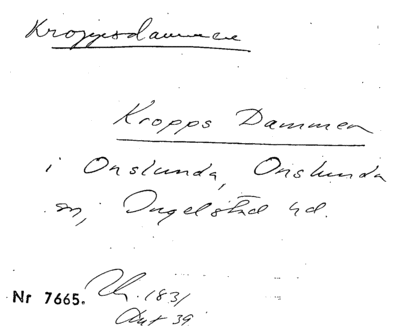 Kroppsdammen
Kropps Dammen
i Onslunda, Onslunda
sn, Ingelstad hd.
Nr 7665. Uh. 1831
Akt 39